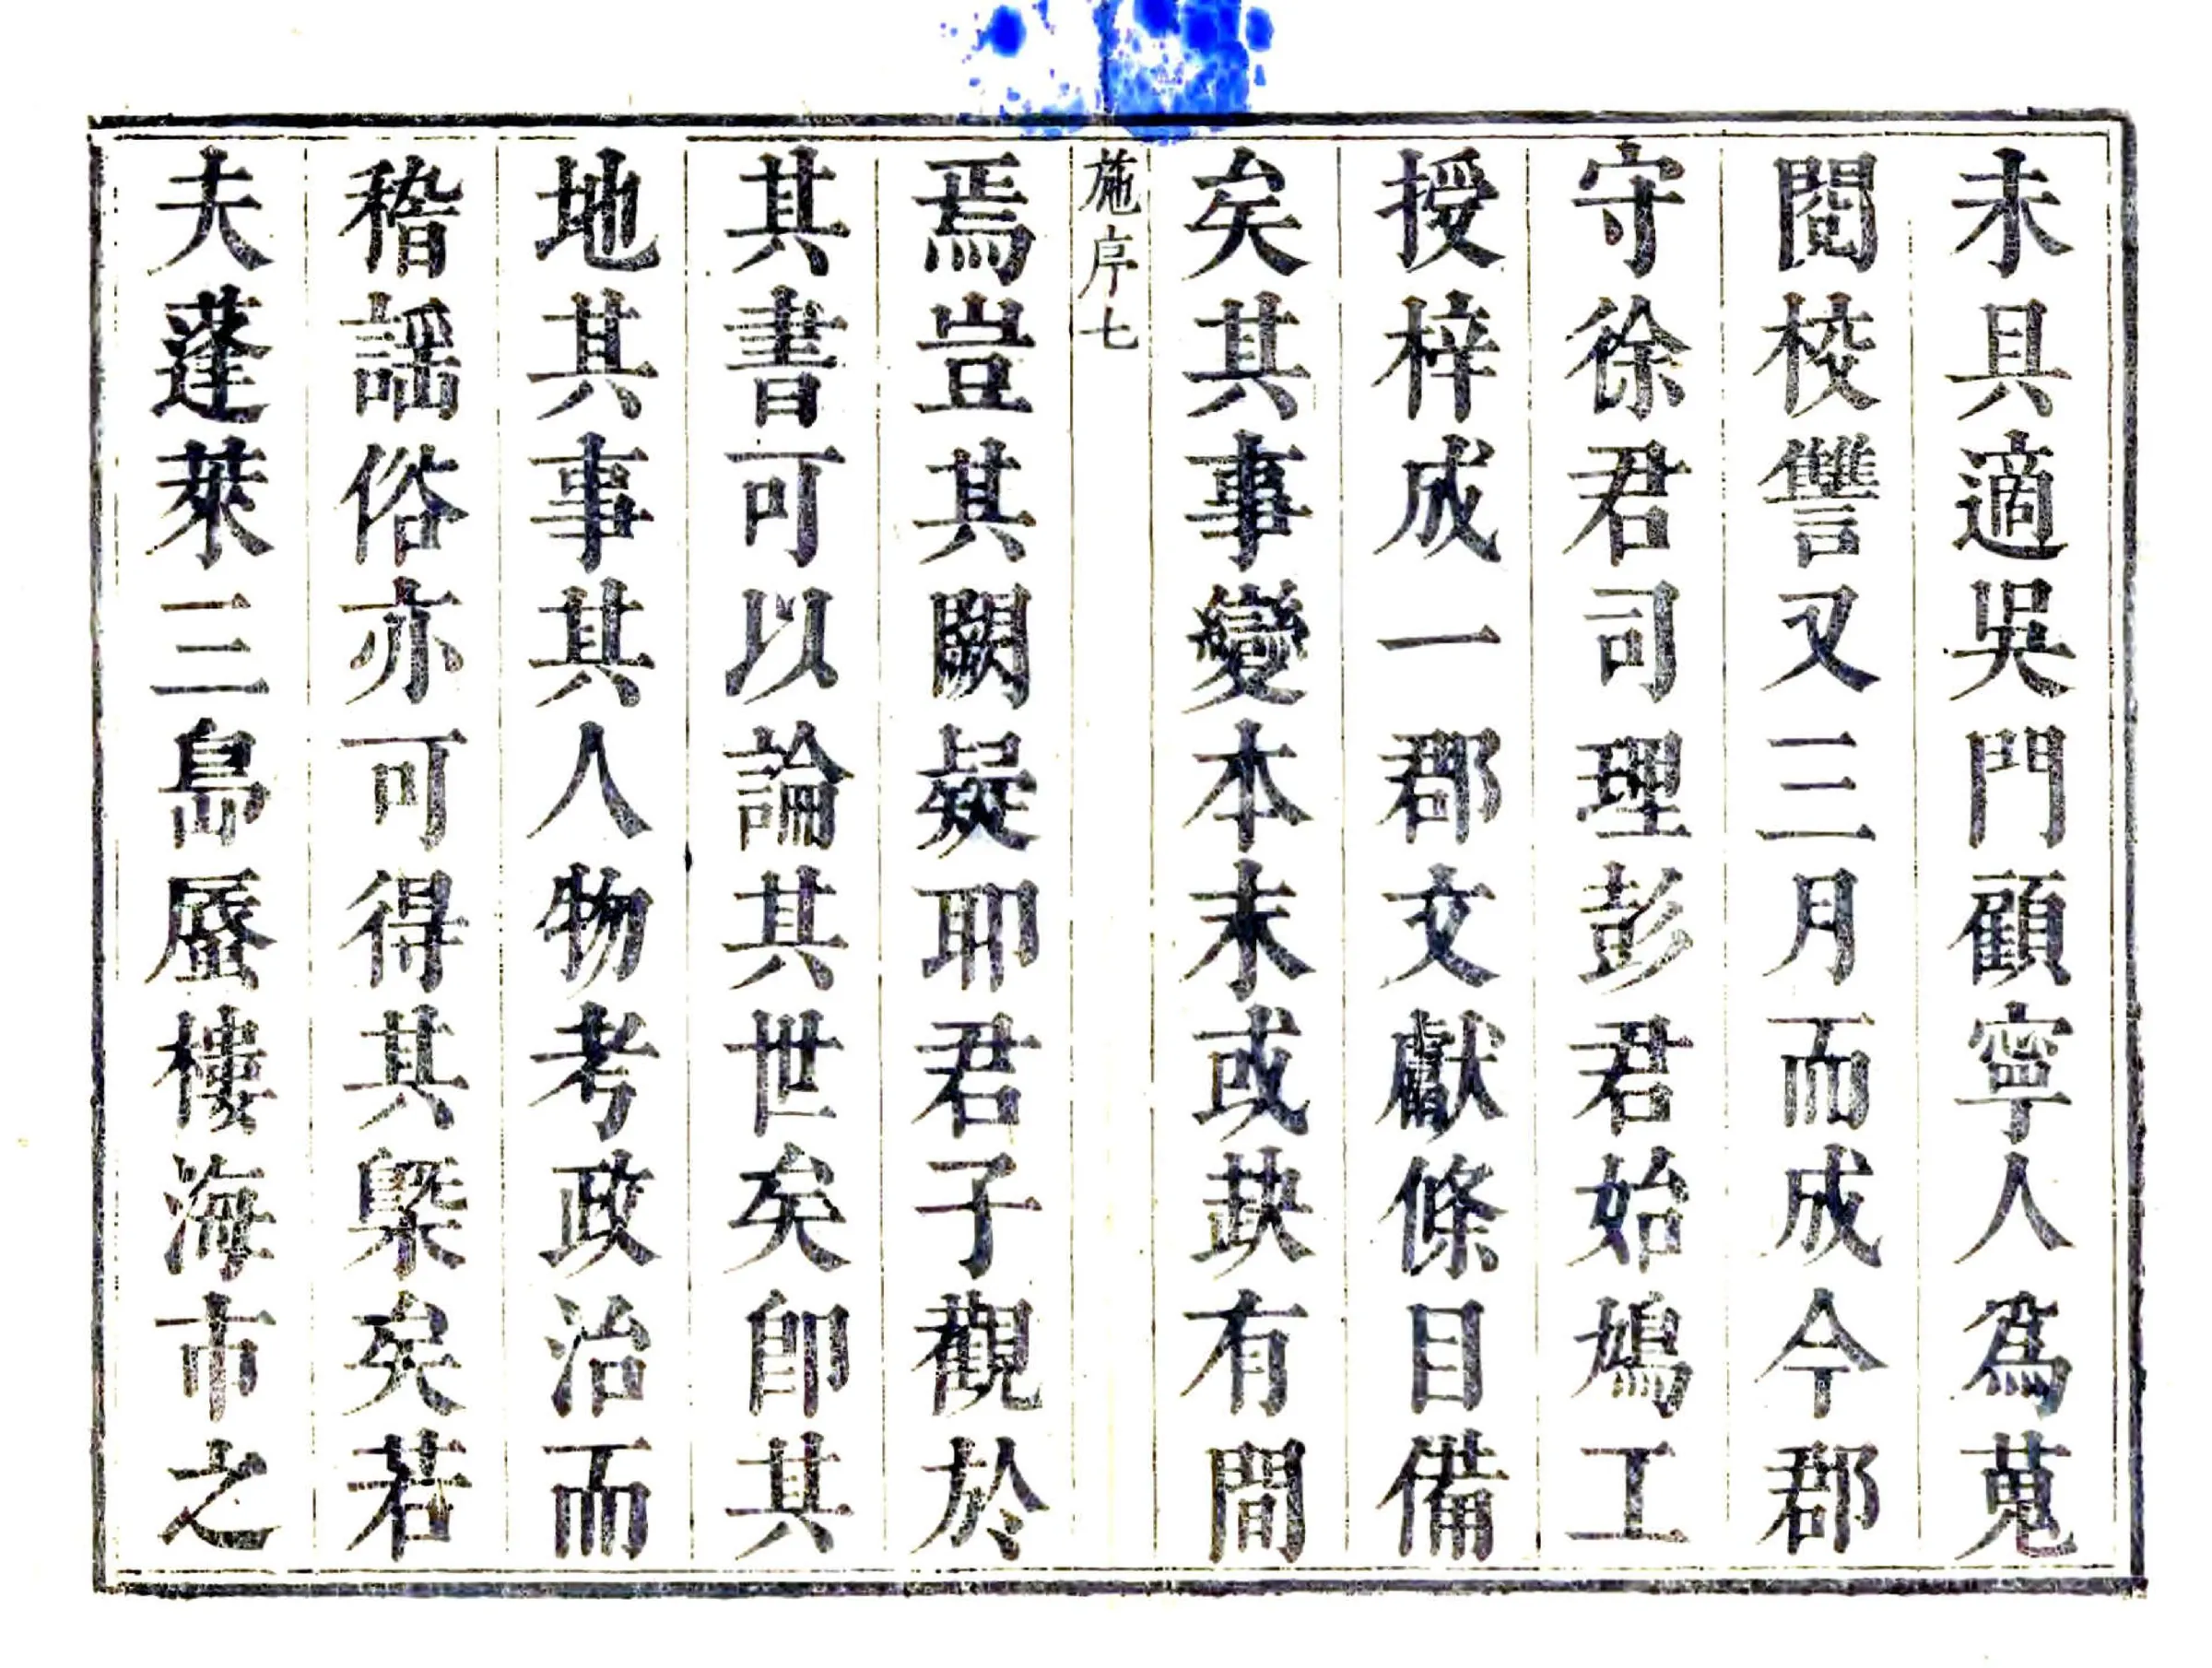 未具適吳門顧寧人爲蒐
閱校讐又三月而成今郡
守徐君司理彭君始鳩工
授梓成一郡文獻條目備
矣其事變本末或缺有間
施序七
焉豈其闕疑耶君子觀於
其書可以論其世矣卽其
地其事其人物考政治而
稽謡俗亦可得其槩矣若
夫蓬萊三島蜃樓海市之